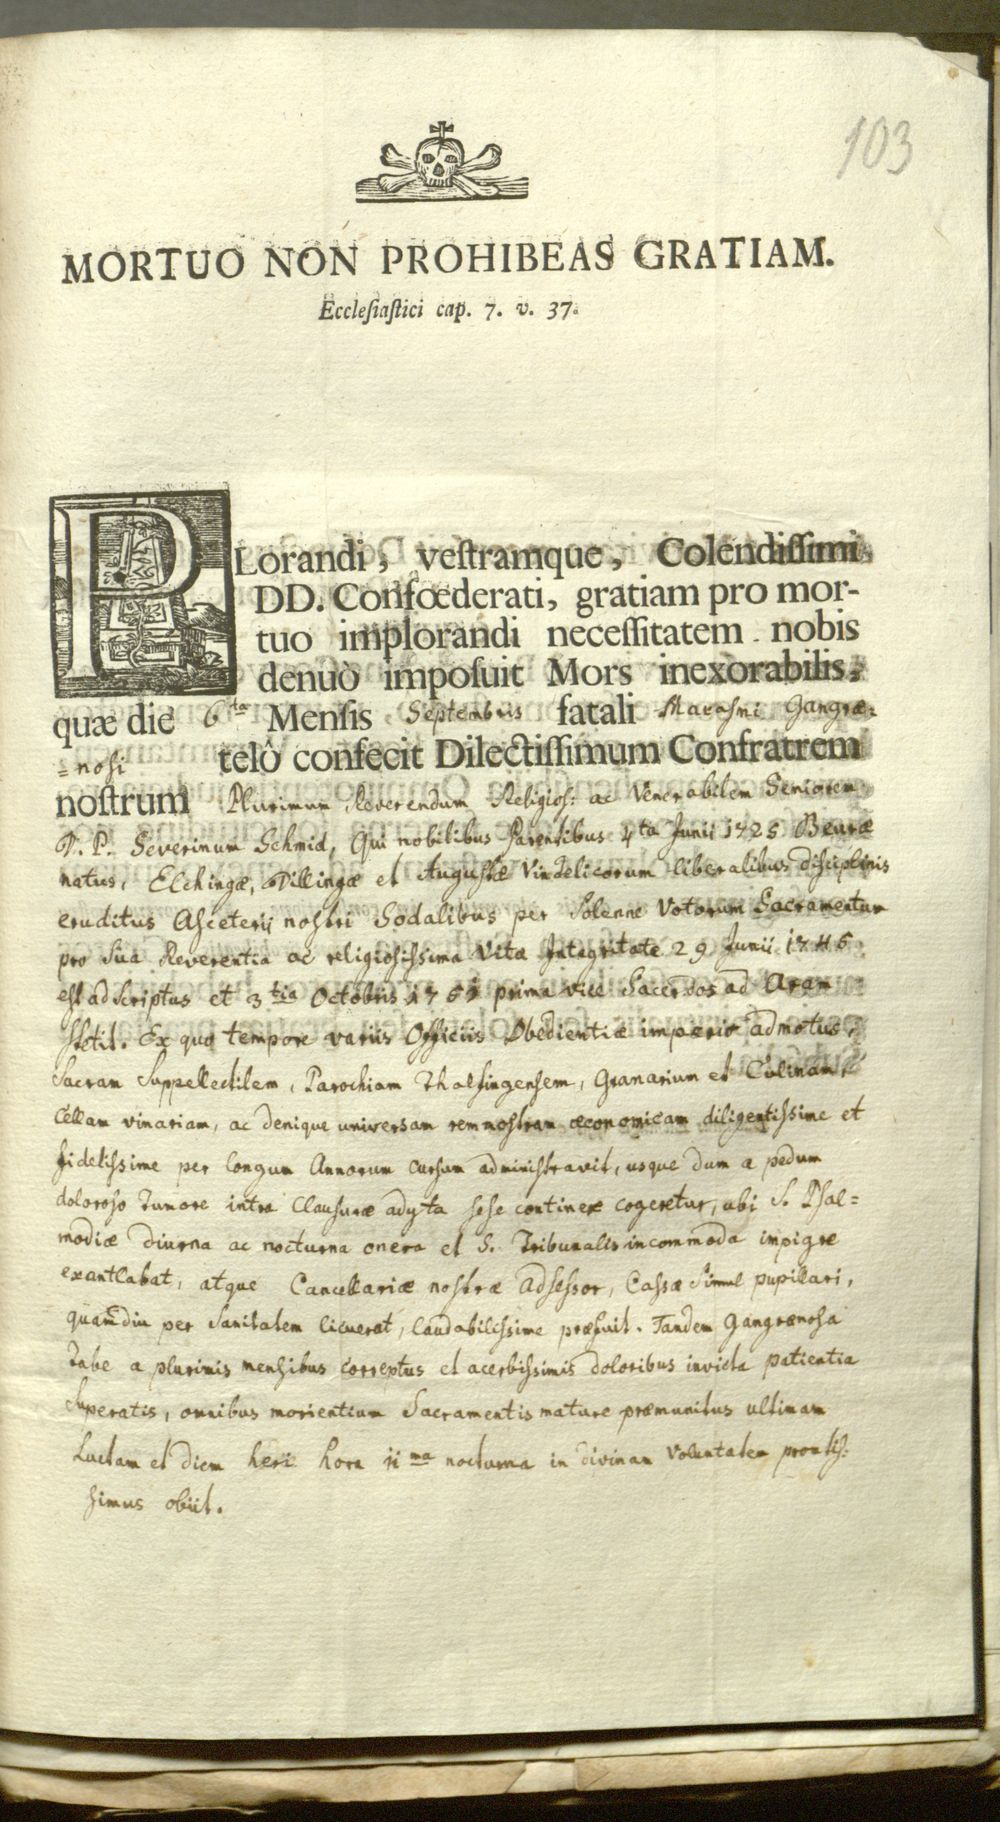 103
MORTUO NON PROHIBEAS GRATIAM.
Eccleſiaſtici cap. 7. v. 37.
PLorandi, veſtramque, Colendiſſimi
DD. Confœderati, gratiam pro mor-
tuo implorandi neceſſitatem nobis
denuò impoſuit Mors inexorabilis,
quæ die 6ta Menſis Septembris fatali Marasmi Gangræ-
=nosi telô confecit Dilectiſſimum Confratrem
noſtrum Plurimum Reverendum Religios: ac Venerabilem Seniorem
P. P. Severinum Schmid, Qui nobilibus Parentibus 4ta Junii 1725 Beuræ
natus, Elchingæ, Dillingæ et Augustæ Vindelicorum liberalibus disciplinis
eruditus Asceterii nostri Sodalibus per Solenne Votorum Sacramentum
pro Sua Reverentia ac religiosissima Vitæ Integritate 29 Junii 1745
est adscriptus et 3tia Octobris 1751 prima vice Sacerdos ad Aram
stetit. Ex quo tempore variis Officiis Obedientiæ imperio admotus,
Sacram Suppellectilem, Parochiam Thalfingensem, Granarium et Culinam,
Cellam vinariam, ac denique universam rem nostram œconomicam diligentissime et
fidelissime per longum Annorum cursum administravit, usque dum a pedum
doloroso tumore intra Clausuræ adyta sese continere cogeretur, ubi S. Psal=
modiæ diurna ac nocturna onera et S. Tribunalis incommoda impigre
exantlabat, atque Cancellariæ nostræ adsessor, Cassæ simul pupillari,
quamdiu per Sanitatem licuerat, laudabilissime præfuit. Tandem Gangrænosa
Tabe a plurimis mensibus correptus et acerbissimis doloribus invicta patientia
Superatis, omnibus morientium Sacramentis mature præmunitus ultimam
Luctam et diem heri hora iima nocturna in divinam Voluntatem promtis:
simus obiit.